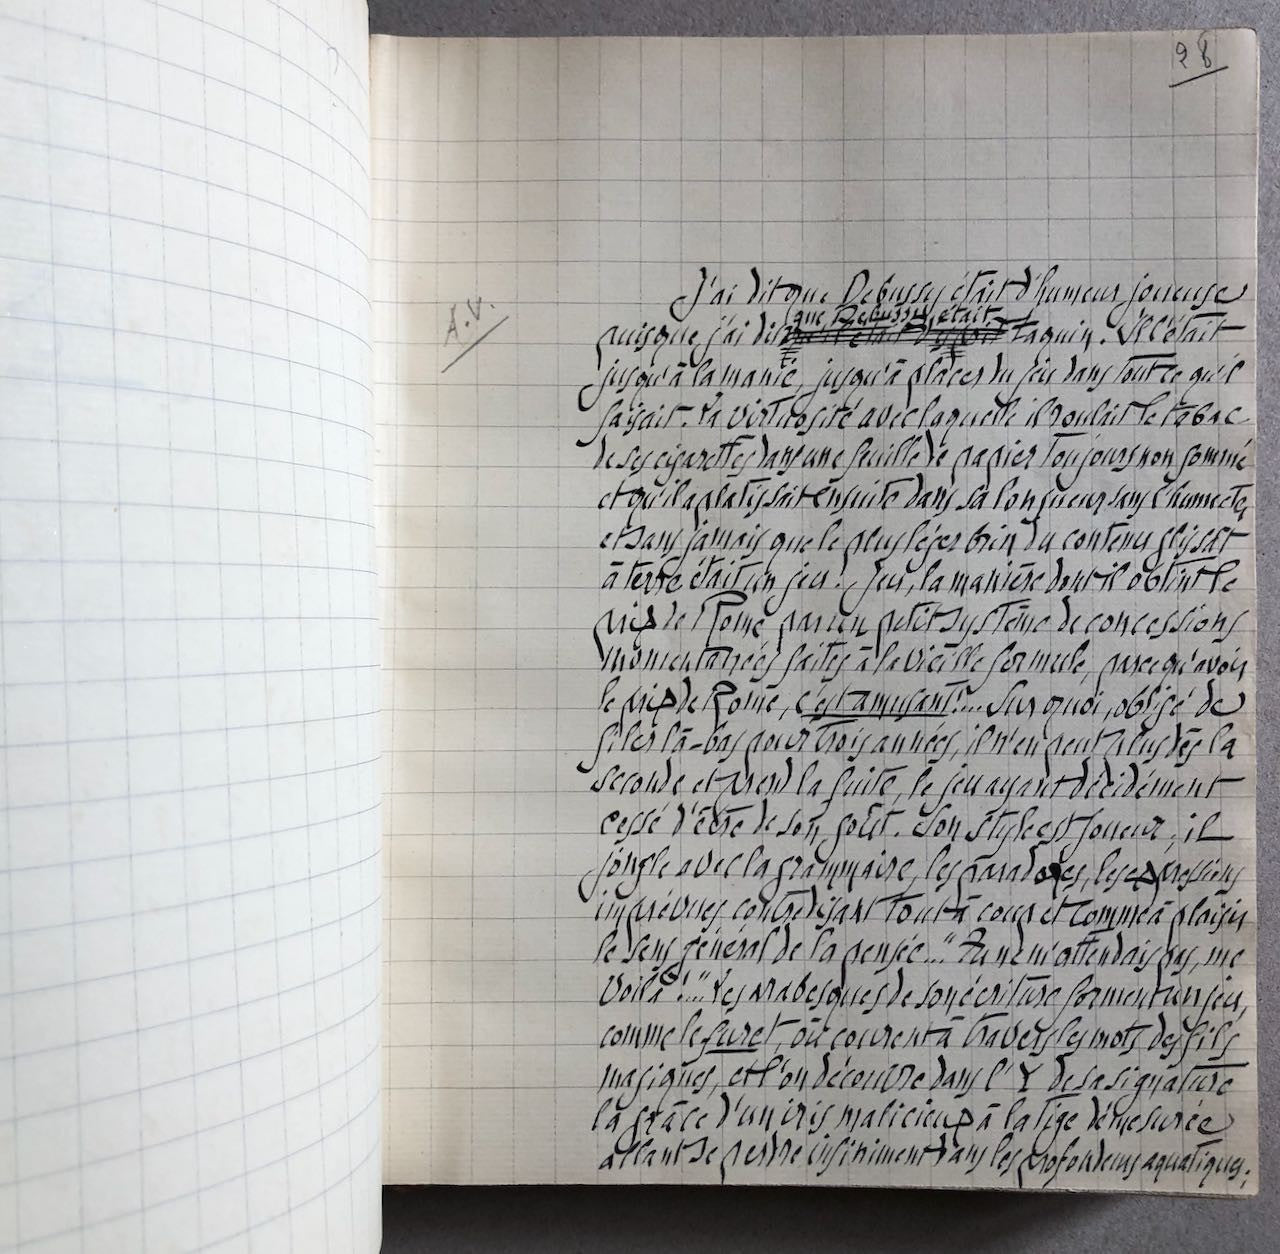 28
A.V.
J'ai dit que Debussy était d'humeur joueuse
que Debussy était
puisque j'ai dit taquin. Il l'était
jusqu'à la manie, jusqu'à placer du jeu dans tout ce qu'il
faisait. La virtuosité avec laquelle il roulait le tabac
de ses cigarettes dans une feuille de papier toujours non gommé
et qu'il aplatissait ensuite dans sa longueur sans l'humecter
et sans jamais que le plus léger brin du contenu glissât
à terre était un jeu! Jeu, la manière dont il obtint le
prix de Rome par un petit système de concessions
momentanées faites à la vieille formule, parce qu'avoir
le prix de Rome, c'est amusant!... Sur quoi, obligé de
filer là-bas pour trois années, il n'en peut plus dès la
seconde et prend la fuite, le jeu ayant décidément
cessé d'être de son goût. Son style est joueur, il
jongle avec la grammaire, les paradoxes, les expressions
imprévues contredisant tout à coup et comme à plaisir
le sens général de la pensée... "Tu ne m'attendais pas, me
voilà!..." Les arabesques de son écriture forment un jeu,
comme le furet, où courent à travers les mots des fils
magiques, et l'on découvre dans l'Y de sa signature
la grâce d'un iris malicieux à la tige démesurée
allant se perdre infiniment dans les profondeurs aquatiques;